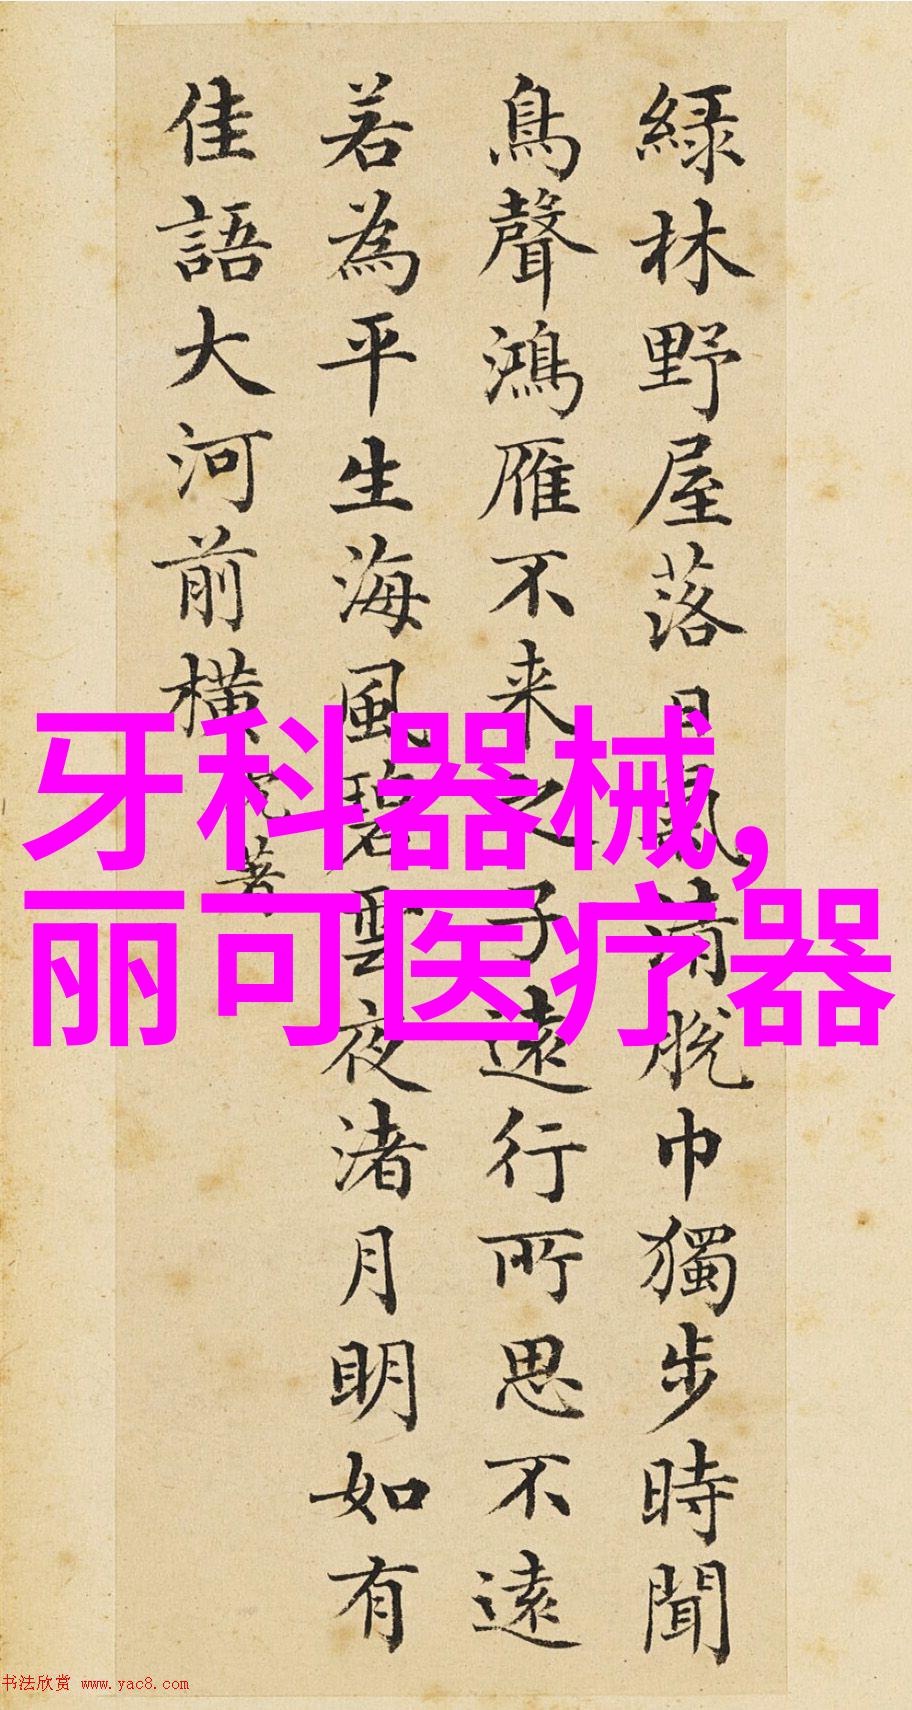 緑林野屋落日氣清脱巾獨步時聞
鳥聲鴻雁不来之子遠行所思不遠
若為平生海風碧雲夜渚月明如有
佳語大河前横
牙科器械,
丽可医疗器
书法欣赏 www.yac8.com